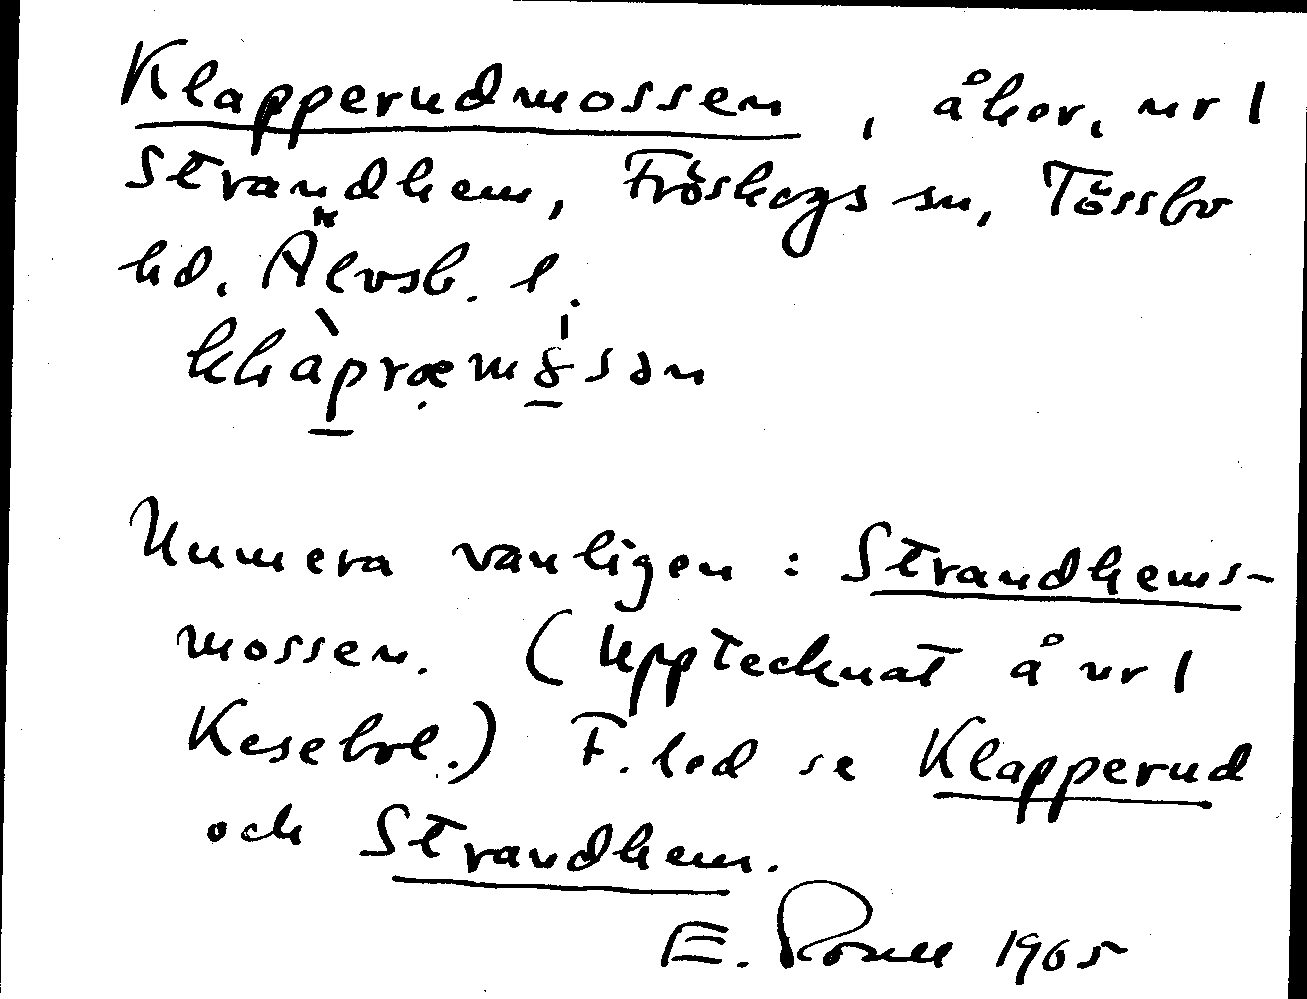 Klapperudmossen, åker, nr 1
Strandhem, Fröskogs sn, Tössbo
hd. Älvsb. l.
Numera vanligen: Strandhems-
mossen. (Upptecknat å nr 1
Kesebol.) F. led se Klapperud
och Strandhem.
E. 1965